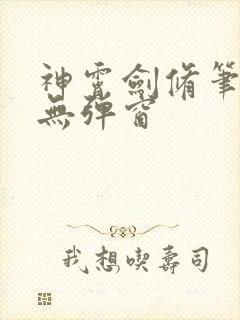 神霄劍脩筆
無彈窗
我想喫壽司